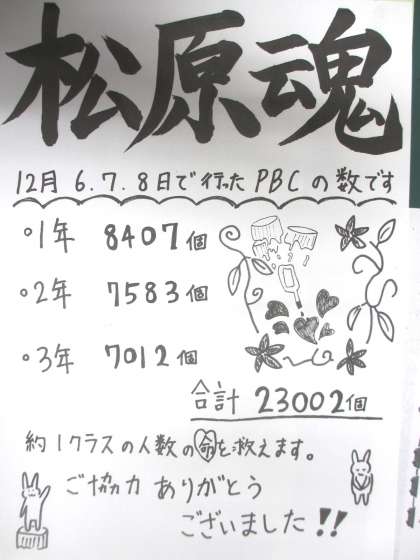 松原魂
12月 6.7.8日で行ったPBCの数です
○1年 8407個
○2年 7583個
○3年 7012個
合計 23002個
約1クラスの人数の命を救えます。
ご協力 ありがとう
ございました!!